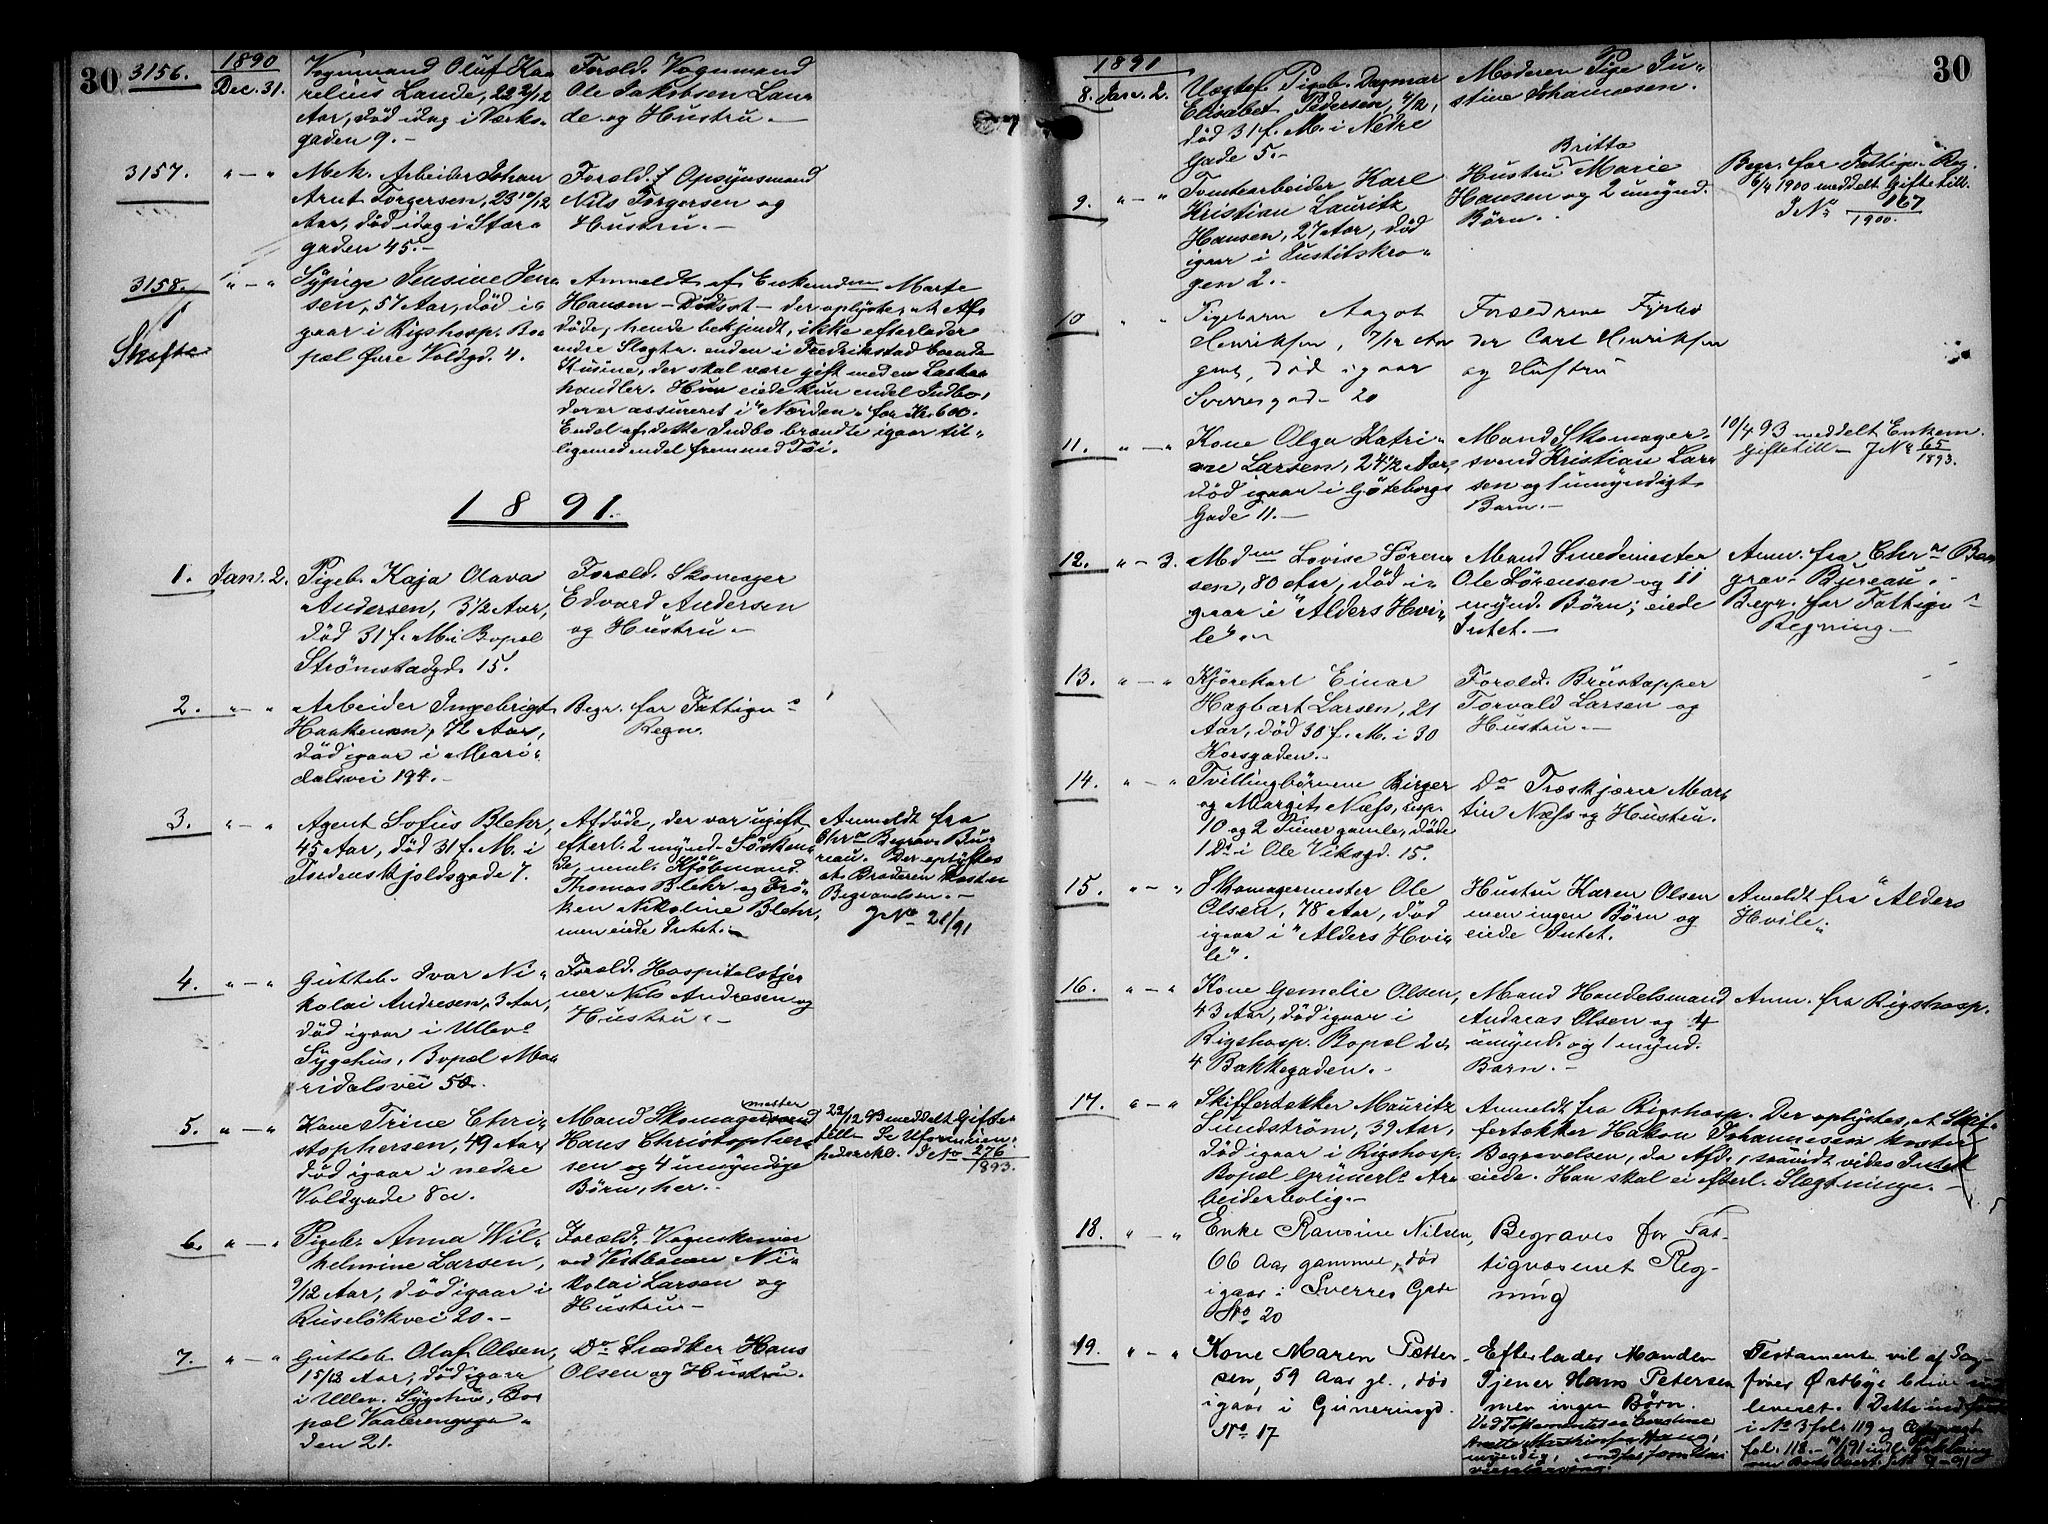 30
3156.
1890
Dec. 31.
Vognmand Oluf Ka-
relius Lande, 22 2/12
Aar, død idag i Værks-
gaden 9.-
Foræld. Vognmand
Ole Jakobsen Lan-
de og Hustru.-
3157.
" - "
Mek. Arbeider Johan
Arnt Torgersen, 23 10/12
Aar, død idag i Stora
gaden 45.-
Foræld. Opsynsmand
Nils Torgersen og
Hustru.-
3158.
Skifte
" - "
Sypige Jensine Jen-
sen, 57 Aar, død i
gaar i Rigshosp. Bo-
pæl Øvre Voldgd. 4.
Anmeldt af Enkemdm Marte
Hansen - Dødsat - der oplyste, at Af-
døde, hende bekjendt, ikke efterlader
andre Slægtn. enden i Fredrikstad boende
Kusine, der skal være gift med en Laster
handler. Hun eiede kun endel Indbo,
der er assureret i "Norden" for Kr. 600.-
Endel af dette Indbo brændte igaar til-
ligemed endel fremmed Tøi.
1891.
1.
Jan. 2.
Pigeb. Kaja Olava
Andersen, 3 1/2 Aar,
død 31 f. M. i Bopæl
Strømstadgd. 15.
Foræld. Skomager
Edvard Andersen
og Hustru.-
2.
" - "
Arbeider Ingebrigt
Haakensen, 72 Aar,
død igaar i Mari-
dalsvei 194.-
Begr. for Fattigv s
Regn.
3.
" - "
Agent Sofus Blehr,
45 Aar, død 31 f. M. i
Tordenskjoldsgade 7.
Afdøde, der var ugift,
efterl. 2 mynd. Søsken-
de, neml. Kjøbmand
Thomas Blehr og Frø-
ken Nikoline Blehr,
men eiede Intet.-
Anmeldt fra
Chr a Begrav. Bu-
reau. Der oplystes
at Broderen koster
Begravelsen.-
JNo 21/91
4.
" - "
Gutteb. Ivar Ni-
kolai Andresen, 3 Aar,
død igaar i Ullev s
Sygehus, Bopæl Ma-
ridalsvei 50.
Foræld. Hospitalstje-
ner Nils Andresen og
Hustru.-
5.
" - "
Kone Trine Chri-
stophersen, 49 Aar,
død igaar i nedre
Voldgade 8a.
mester
Mand Skomagersvend
Hans Christopher-
sen og 4 umyndige
Børn, her.-
22/12 93 meddelt Gifte-
till.
JNo 276
1893.
6.
" - "
Pigeb. Anna Wil-
helmine Larsen,
9/12 Aar, død igaar i
Ruseløkvei 20.-
Foræld. Vognskriver
ved Vestbanen Ni-
kolai Larsen og
Hustru-
7.
" - "
Gutteb. Olaf Olsen,
15/12 Aar, død igaar
i Ullev. Sygehus, Bo-
pæl Vaalerengsga-
den 21.
Do Snedker Hans
Olsen og Hustru.
30
1891
8. Jan. 2.
Uægtef. Pigeb. Dagmar
Elisabet Pedersen, 4/12,
død 31 f. M. i Nedre
Gade 5.-
Moderen Pige Ju-
stine Johannesen.
9.
" - "
Tomtearbeider Karl
Kristian Lauritz
Hansen, 27 Aar, død
igaar i Justitskro-
gen 2.-
Britta
Hustru Marie
Hansen og 2 umynd.
Børn.
Begr. for Fattigv. Reg.
6/4 1900 meddelt Giftetill.
JNo 167
1900.
10
" "
Pigebarn Aagot
Henriksen, 7/12 Aar
gml, død igaar
Sverresgad- 20
Forældrene Fyrbø
der Carl Henriksen
og Hustru
11.
" - "
Kone Olga Katri-
ne Larsen, 24 1/2 Aar,
død igaar i Göteborgs
Gade 11.-
Mand Skomager-
svend Kristian Lar-
sen og 1 umyndigt
Barn.-
10/4 93 meddelt Enkem.
Giftetill- JNo 65
1893.
12.
" - 3.
Mdm Lovise Søren-
sen, 80 Aar, død i-
gaar i "Alders Hvi-
le".-
Mand Smedemester
Ole Sørensen og 11
mynd. Børn; eiede
Intet.-
Anm. fra Chr as Be-
grav. Bureau.-
Begr. for Fattigv s
Regning.-
13.
" - "
Kjørekarl Einar
Hagbart Larsen, 21
Aar, død 30 f. M. i 30
Korsgaden.-
Foræld. Brustapper
Torvald Larsen og
Hustru.-
14.
" - "
Tvillingbørnene Birger
og Margit Næss, resp.
10 og 2 Timer gamle, døde
1 Ds i Ole Viksgd. 15.
Do Træskjærer Mar-
tin Næss og Hustru.
15.
" - "
Skomagermester Ole
Olsen, 78 Aar, død
igaar i "Alders Hvi-
le".
Hustru Karen Olsen
men ingen Børn og
eiede Intet.
Anmeldt fra "Alders
Hvile".
16.
" - "
Kone Gemelie Olsen,
43 Aar, død igaar i
Rigshosp. Bopæl
4 Bakkegaden.-
Mand Handelsmand
Andreas Olsen og 4
umynd. og 1 mynd.
Barn.-
Anm. fra Rigshosp.
17.
" - "
Skiffertækker Mauritz
Sundström, 39 Aar,
død igaar i Rigshosp.
Bopæl Grünerl. Ar-
beiderbolig.-
Anmeldt fra Rigshosp. Der oplystes, at Skif-
fertækker Håkon Johannesen koster
Begravelsen, da Afd., saavidt vides Intet
eiede. Han skal ei efterl. Slægtninge.-
18.
" - "
Enke Ransine Nilsen,
66 Aar gammel, død
igaar i Sverres Gade
No 20
Begraves for Fat-
tigvæsenet Reg-
ning
19.
" - "
Kone Maren Petter-
sen, 59 Aar gl., død
igaar i Guneriusgd.
No 17
Efterlader Manden
Tjener Hans Petersen
men ingen Børn.
Testamente vil af Sag-
fører Østbye blive ind-
leveret. Dette indført
i No 3 fol. 119 og
fol. 118.-